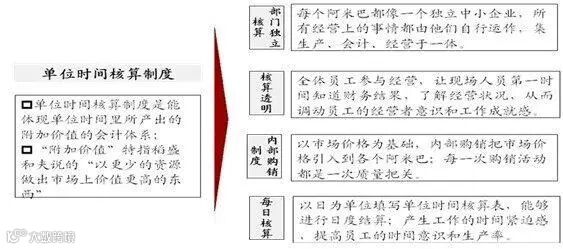 单位时间核算制度
单位时间核算制度是能
体现单位时间里所产出的
附加价值的会计体系；
“附加价值”特指稻盛
和夫说的“以更少的资源
做出市场上价值更高的东
西”
部门独立
核算
每个阿米巴都像一个独立中小企业，所
有经营上的事情都由他们自行运作，集
生产、会计、经营于一体。
核算透明
全体员工参与经营，让现场人员第一时
间知道财务结果，了解经营状况，从而
调动员工的经营者意识和工作成就感。
内部购销
制度
以市场价格为基础，内部购销把市场价
格引入到各个阿米巴；每一次购销活动
都是一次质量把关。
每日核算
以日为单位填写单位时间核算表，能够
进行日度结算；产生工作的时间紧迫感
，提高员工的时间意识和生产率。